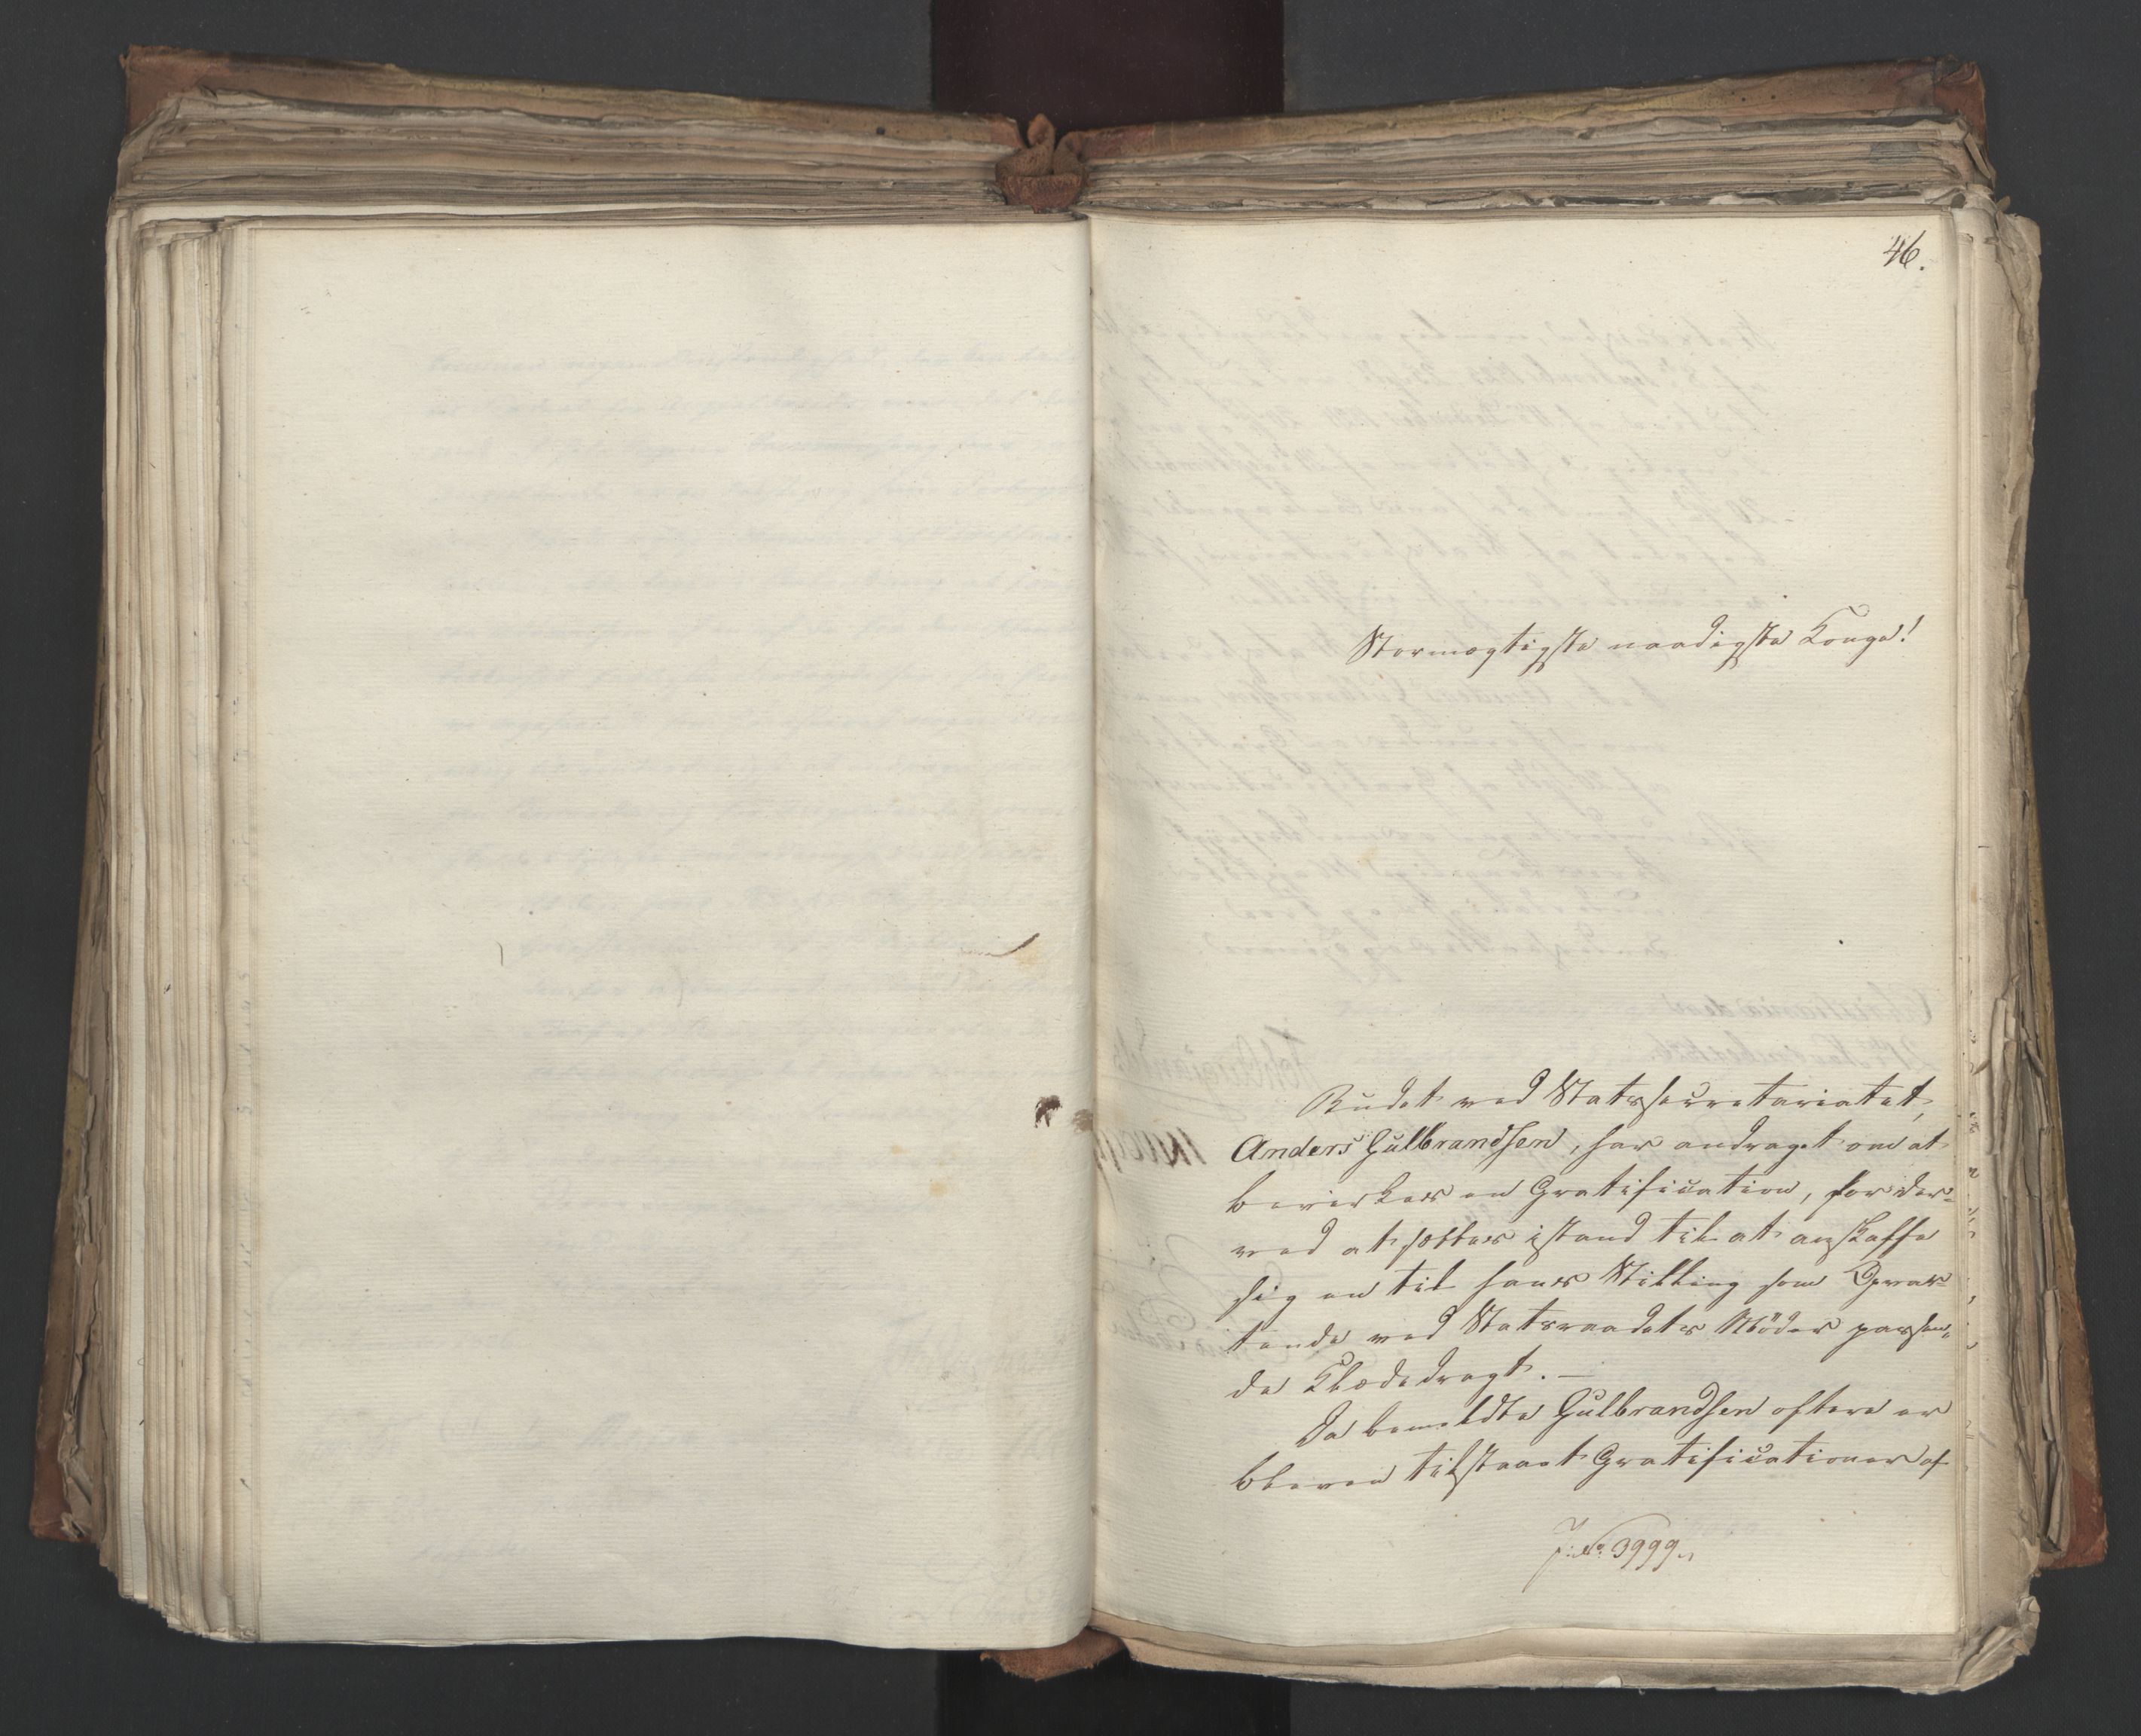 46.
Stormægtigste naadigste Konge!
Budet ved Statssecretariatet,
Anders Gulbrandsen, har andraget om at
bevirkes en Gratification, for der=
ved at sættes istand til at anskaffe
sig en til hans Stilling som Opvar=
tende ved Statsraadets Møder passen=
de Klædedragt. —
Da bemeldte Gulbrandsen oftere er
bleven tilstaaet Gratificationer af
J: No 3999.